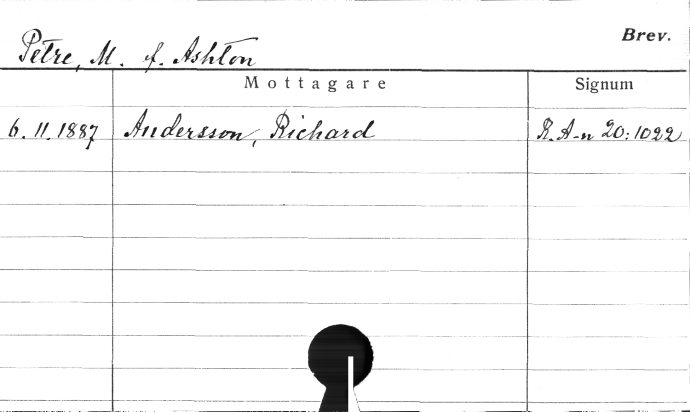 Brev.
Petre, M. f. Ashton
Mottagare Signum
6.11.1887 Andersson, Richard R. A-n 20:1022